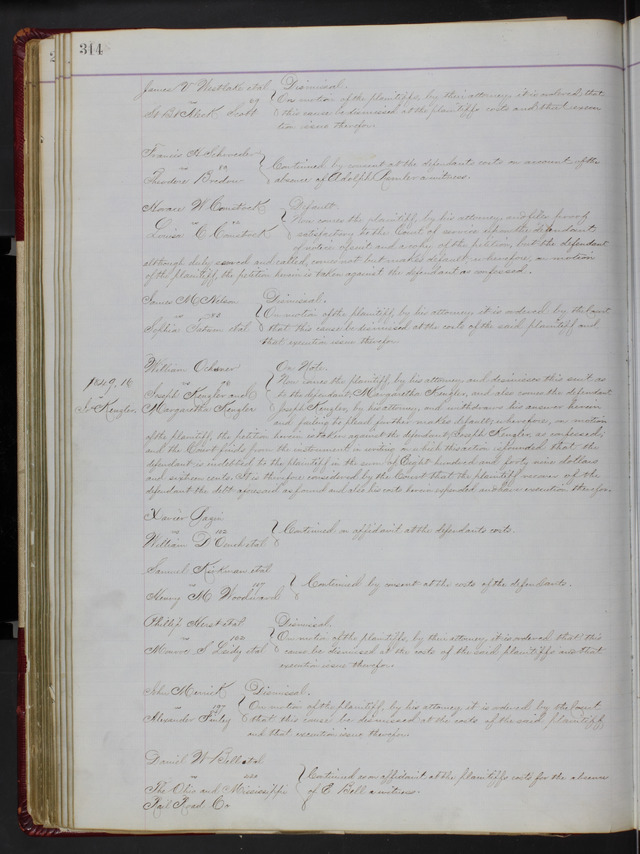 314
James V. Westlake et al Dismissal.
vs 69 On motion of the plaintiffs, by their attorney, it is ordered, that
Scott this cause be dismissed at the plaintiffs costs and that execu
tion issue therefor.
Francis H. Schroeder
vs Continued by consent at the defendants costs on account of the
Theodore Bredow absence of Adolph a witness.
Horace W. Comstock Default.
vs Now comes the plaintiff, by his attorney and files proof
Louisa C. Comstock satisfactory to the Court of service upon the defendants
of notice of suit and a copy of the petition, but the defendant
although duly served and called, comes not but makes default; wherefore, on motion
of the plaintiff, the petition herein is taken against the defendant as confessed.
James M. Nelson Dismissal.
vs On motion of the plaintiff, by his attorney, it is ordered by the Court
Sophia Tatum et al that this cause be dismissed at the costs of the said plaintiff and
that execution issue therefor
William Ochsner On Note.
vs Now comes the plaintiff, by his attorney, and dismisses this suit as
$849.16 Joseph Kengler and to the defendant, Margaretha Kengler, and also comes the defendant
Jr Kengler. Margaretha Kengler Joseph Kengler, by his attorney, and withdraws his answer herein
and failing to plead further makes default; wherefore, on motion
of the plaintiff, the petition herein is taken against the defendant, Joseph Kengler, as confessed;
and the Court finds from the instrument in writing on which this action is founded that the
defendant is indebted to the plaintiff in the sum of Eight hundred and forty nine dollars
and sixteen cents. It is therefore considered by the Court that the plaintiff recover of the
defendant the debt assessed as found and also his costs herein expended and have execution therefor.
Xavier
vs 102 Continued on affidavit at the defendants costs.
William D. et al
Samuel Kirkman et al
vs 107 Continued by consent at the costs of the defendants.
Henry M. Woodward
Phillip Herst et al Dismissal.
vs On motion of the plaintiffs, by their attorney, it is ordered that this
Monroe S. Leidy et al cause be dismissed at the costs of the said plaintiffs and that
execution issue therefor
John Merrick Dismissal.
vs On motion of the plaintiff, by his attorney it is ordered by the Court
Alexander Finley that this cause be dismissed at the costs of the said plaintiff,
and that execution issue therefor
Daniel W. Bell et al
vs Continued on affidavit at the plaintiffs costs for the absence
The Ohio and Mississippi of E. Bell a witness.
Rail Road Co